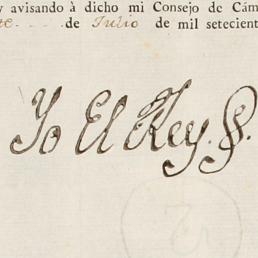 y avisando à dicho mi Consejo de Cám
te de Julio de mil setecient
Yo El Rey.